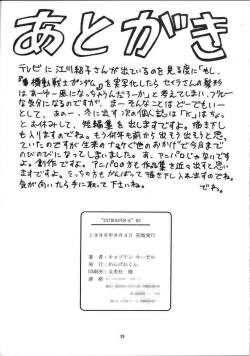 あとがき
テレビに江川紹子さんが出ているのを見る度に「もし、
『機動戦士ガンダム』を実写化したらセイラさんの髪形
はあーゆー風になっちゃうんだろーか」と考えてしまい、ブルー
な気分になるのですが、まーそんなことはどーでもいー
として、あのー、冬に出す次の個人誌は「K」はちょっ
とお休みして、短編集を出しますですよ。描き下し
も入りますですね。もう何年も前から出そう出そうと思っ
ていたのですが生来の
のびのびになってしまいました。あ、アニパロじゃないです
よ。創作ですよ。アニパロの方も作品集を近々出すと思い
ますですよ。そっちの方もがんばって描き下し入れますですね。
気が向いたら手に取って下さいね。
でわ。
1996年8月4日 初版発行
著者：キャプテン・キーゼル
発行：めんげれくん
印刷所：文秀社 様